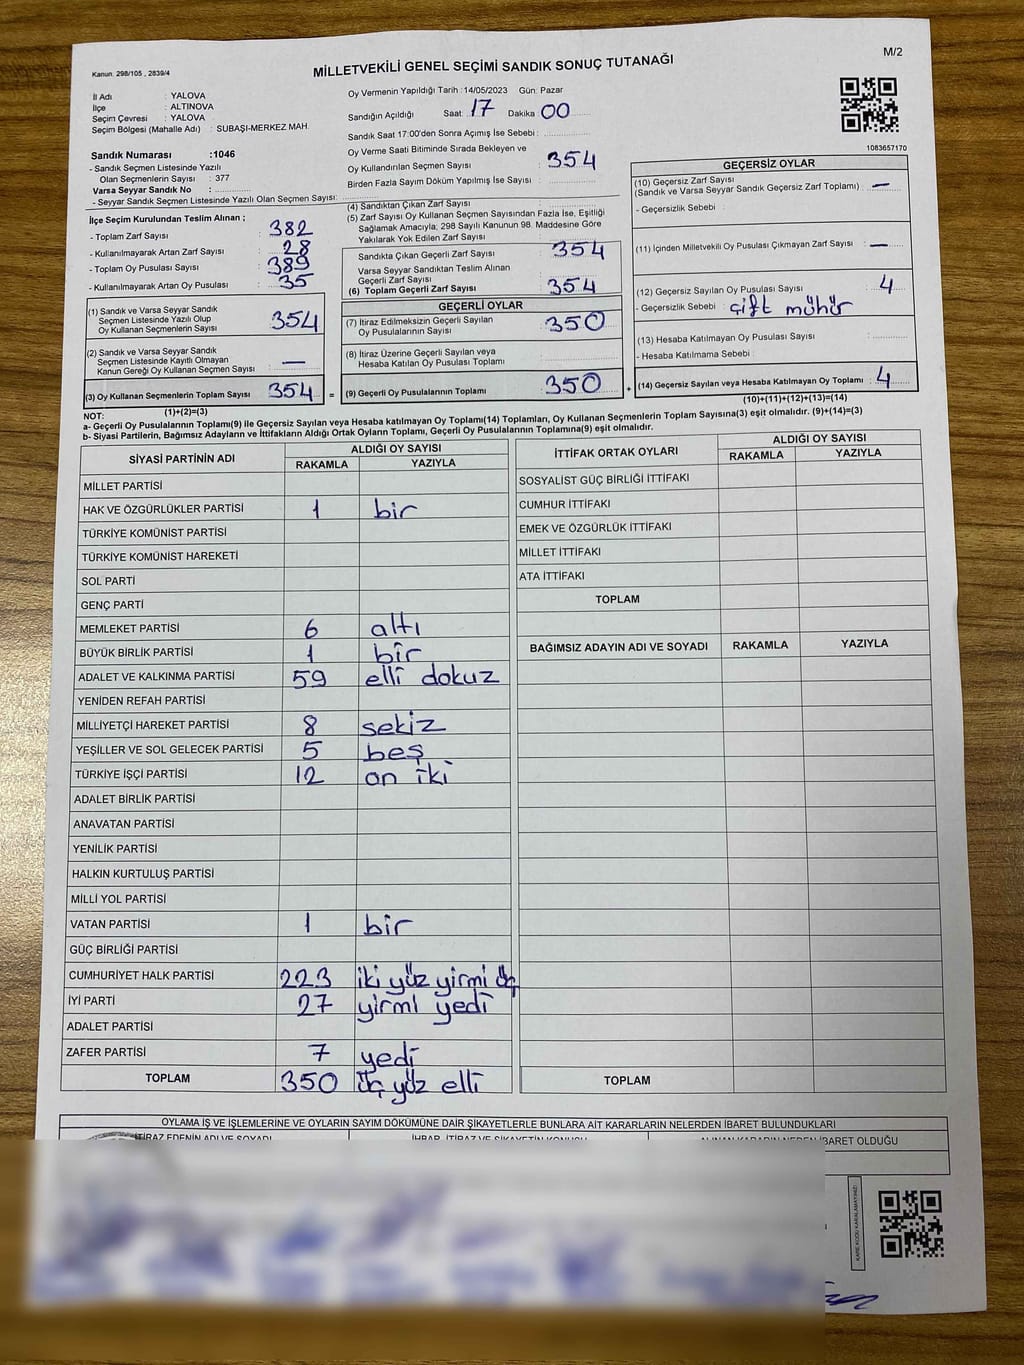 Kanun. 298/105 , 2839/4
MİLLETVEKİLİ GENEL SEÇİMİ SANDIK SONUÇ TUTANAĞI
M/2
İl Adı : YALOVA
İlçe : ALTINOVA
Seçim Çevresi : YALOVA
Seçim Bölgesi (Mahalle Adı) : SUBAŞI-MERKEZ MAH.
Sandık Numarası :1046
- Sandık Seçmen Listesinde Yazılı
Olan Seçmenlerin Sayısı : 377
Varsa Seyyar Sandık No :
- Seyyar Sandık Seçmen Listesinde Yazılı Olan Seçmen Sayısı:
Oy Vermenin Yapıldığı Tarih :14/05/2023 Gün: Pazar
Sandığın Açıldığı Saat: 17 Dakika 00
Sandık Saat 17:00'den Sonra Açımış İse Sebebi :
Oy Verme Saati Bitiminde Sırada Bekleyen ve
Oy Kullandırılan Seçmen Sayısı : 354
Birden Fazla Sayım Döküm Yapılmış İse Sayısı :
1083657170
İlçe Seçim Kurulundan Teslim Alınan ;
- Toplam Zarf Sayısı : 382
- Kullanılmayarak Artan Zarf Sayısı : 28
- Toplam Oy Pusulası Sayısı : 389
- Kullanılmayarak Artan Oy Pusulası : 35
(1) Sandık ve Varsa Seyyar Sandık
Seçmen Listesinde Yazılı Olup
Oy Kullanan Seçmenlerin Sayısı : 354
(2) Sandık ve Varsa Seyyar Sandık
Seçmen Listesinde Kayıtlı Olmayan
Kanun Gereği Oy Kullanan Seçmen Sayısı : —
(3) Oy Kullanan Seçmenlerin Toplam Sayısı : 354 =
(1)+(2)=(3)
(4) Sandıktan Çıkan Zarf Sayısı :
(5) Zarf Sayısı Oy Kullanan Seçmen Sayısından Fazla İse, Eşitliği
Sağlamak Amacıyla; 298 Sayılı Kanunun 98. Maddesine Göre
Yakılarak Yok Edilen Zarf Sayısı :
Sandıkta Çıkan Geçerli Zarf Sayısı : 354
Varsa Seyyar Sandıktan Teslim Alınan
Geçerli Zarf Sayısı :
(6) Toplam Geçerli Zarf Sayısı : 354
GEÇERLİ OYLAR
(7) İtiraz Edilmeksizin Geçerli Sayılan
Oy Pusulalarının Sayısı : 350
(8) İtiraz Üzerine Geçerli Sayılan veya
Hesaba Katılan Oy Pusulası Toplamı :
(9) Geçerli Oy Pusulalarının Toplamı : 350 +
GEÇERSİZ OYLAR
(10) Geçersiz Zarf Sayısı
(Sandık ve Varsa Seyyar Sandık Geçersiz Zarf Toplamı) : —
- Geçersizlik Sebebi :
(11) İçinden Milletvekili Oy Pusulası Çıkmayan Zarf Sayısı : —
(12) Geçersiz Sayılan Oy Pusulası Sayısı : 4
- Geçersizlik Sebebi : çift mühür
(13) Hesaba Katılmayan Oy Pusulası Sayısı :
- Hesaba Katılmama Sebebi :
(14) Geçersiz Sayılan veya Hesaba Katılmayan Oy Toplamı : 4
(10)+(11)+(12)+(13)=(14)
NOT:
a- Geçerli Oy Pusulalarının Toplamı(9) ile Geçersiz Sayılan veya Hesaba katılmayan Oy Toplamı(14) Toplamları, Oy Kullanan Seçmenlerin Toplam Sayısına(3) eşit olmalıdır. (9)+(14)=(3)
b- Siyasi Partilerin, Bağımsız Adayların ve İttifakların Aldığı Ortak Oyların Toplamı, Geçerli Oy Pusulalarının Toplamına(9) eşit olmalıdır.
SİYASİ PARTİNİN ADI ALDIĞI OY SAYISI
RAKAMLA YAZIYLA
MİLLET PARTİSİ
HAK VE ÖZGÜRLÜKLER PARTİSİ 1 bir
TÜRKİYE KOMÜNİST PARTİSİ
TÜRKİYE KOMÜNİST HAREKETİ
SOL PARTİ
GENÇ PARTİ
MEMLEKET PARTİSİ 6 altı
BÜYÜK BİRLİK PARTİSİ 1 bir
ADALET VE KALKINMA PARTİSİ 59 elli dokuz
YENİDEN REFAH PARTİSİ
MİLLİYETÇİ HAREKET PARTİSİ 8 sekiz
YEŞİLLER VE SOL GELECEK PARTİSİ 5 beş
TÜRKİYE İŞÇİ PARTİSİ 12 on iki
ADALET BİRLİK PARTİSİ
ANAVATAN PARTİSİ
YENİLİK PARTİSİ
HALKIN KURTULUŞ PARTİSİ
MİLLİ YOL PARTİSİ
VATAN PARTİSİ 1 bir
GÜÇ BİRLİĞİ PARTİSİ
CUMHURİYET HALK PARTİSİ 223 iki yüz yirmi üç
İYİ PARTİ 27 yirmi yedi
ADALET PARTİSİ
ZAFER PARTİSİ 7 yedi
TOPLAM 350 üç yüz elli
İTTİFAK ORTAK OYLARI ALDIĞI OY SAYISI
RAKAMLA YAZIYLA
SOSYALİST GÜÇ BİRLİĞİ İTTİFAKI
CUMHUR İTTİFAKI
EMEK VE ÖZGÜRLÜK İTTİFAKI
MİLLET İTTİFAKI
ATA İTTİFAKI
TOPLAM
BAĞIMSIZ ADAYIN ADI VE SOYADI RAKAMLA YAZIYLA
TOPLAM
OYLAMA İŞ VE İŞLEMLERİNE VE OYLARIN SAYIM DÖKÜMÜNE DAİR ŞİKAYETLERLE BUNLARA AİT KARARLARIN NELERDEN İBARET BULUNDUKLARI
İTİRAZ EDENİN ADI VE SOYADI İHBAR, İTİRAZ VE ŞİKAYETİN KONUSU ALINAN KARARIN NEDEN İBARET OLDUĞU
KARE KODU KARALAMAYINIZ!